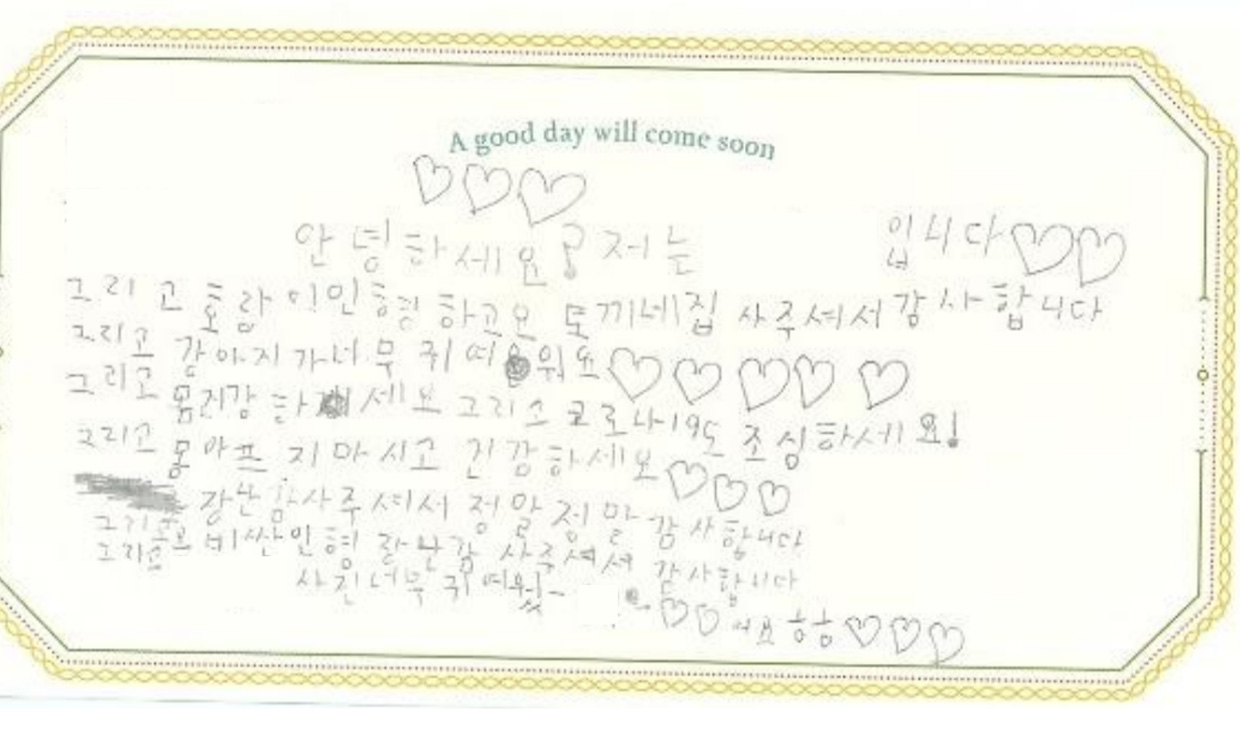 A good day will come soon
♡♡♡
안녕하세요? 저는 입니다♡♡
그리고 호랑이인형하고요 토끼네집 사주셔서 감사합니다
그리고 강아지가너무 귀여워요♡♡♡♡♡
그리고 몸건강하세요 그리고 코로나19도 조심하세요!
그리고 몸아프지마시고 건강하세요♡♡♡
장난감사주셔서 정말정말 감사합니다
그리고 비싼인형 장난감 사주셔서 감사합니다
그리고 사진너무귀여워ㅅ-
♡♡ 어요 ㅎㅎ♡♡♡